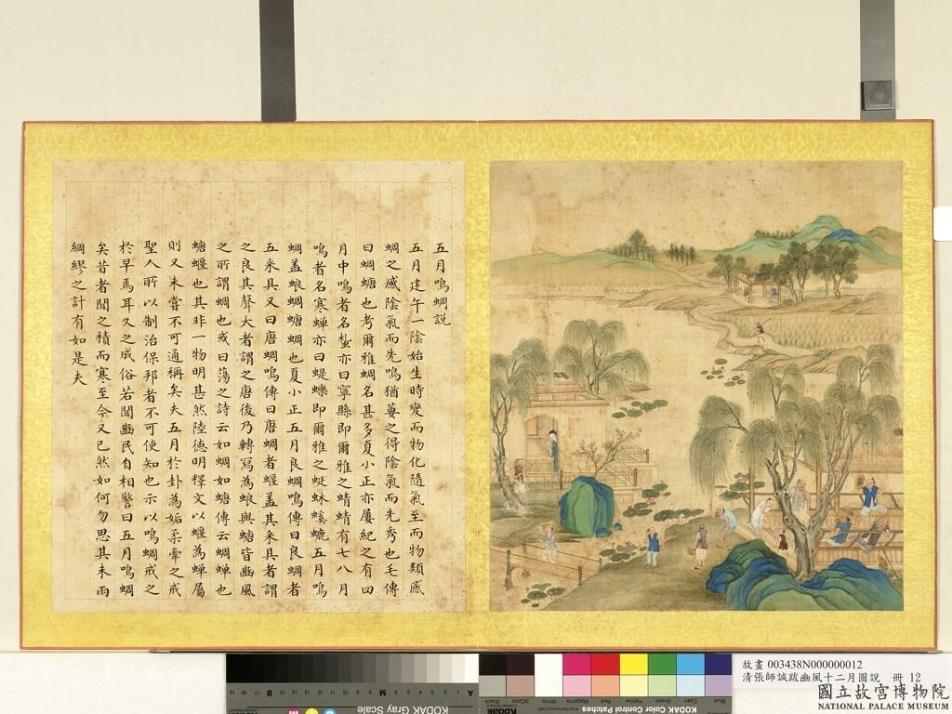 五月鳴蜩說
五月建午一陰始生時變而物化隨氣至而物類感
蜩之感陰氣而先鳴猶葽之得陰氣而先秀也毛傳
曰蜩螗也考爾雅蜩名甚多夏小正亦屢紀之有四
月中鳴者名蜇亦曰寧縣即爾雅之蜻蜻有七八月
鳴者名寒蟬亦曰蝭蠑即爾雅之蜓蚞螇螰五月鳴
蜩蓋蜋蜩螗蜩也夏小正五月良蜩鳴傳曰良蜩者
五采具又曰唐蜩鳴傳曰唐蜩者蝘蓋其采具者謂
之良其聲大者謂之唐後乃轉寫為蜋與螗皆豳風
之所謂蜩也或曰蕩之詩云如蜩如螗傳云蜩蟬也
螗蝘也其非一物明甚然陸德明釋文以蝘為蟬屬
則又未嘗不可通稱矣夫五月於卦為姤柔彙之戒
聖人所以制治保邦者不可使知也示以鳴蜩戒之
於早焉耳久之成俗若聞豳民自相警曰五月鳴蜩
矣昔者聞之積而寒至今又已然如何勿思其未雨
綢繆之計有如是夫
故畫 003438N000000012
清張師誠跋豳風十二月圖說 冊 12
國立故宮博物院
NATIONAL PALACE MUSEUM
KODAK Gray Scale
KODAK Color Control Patches